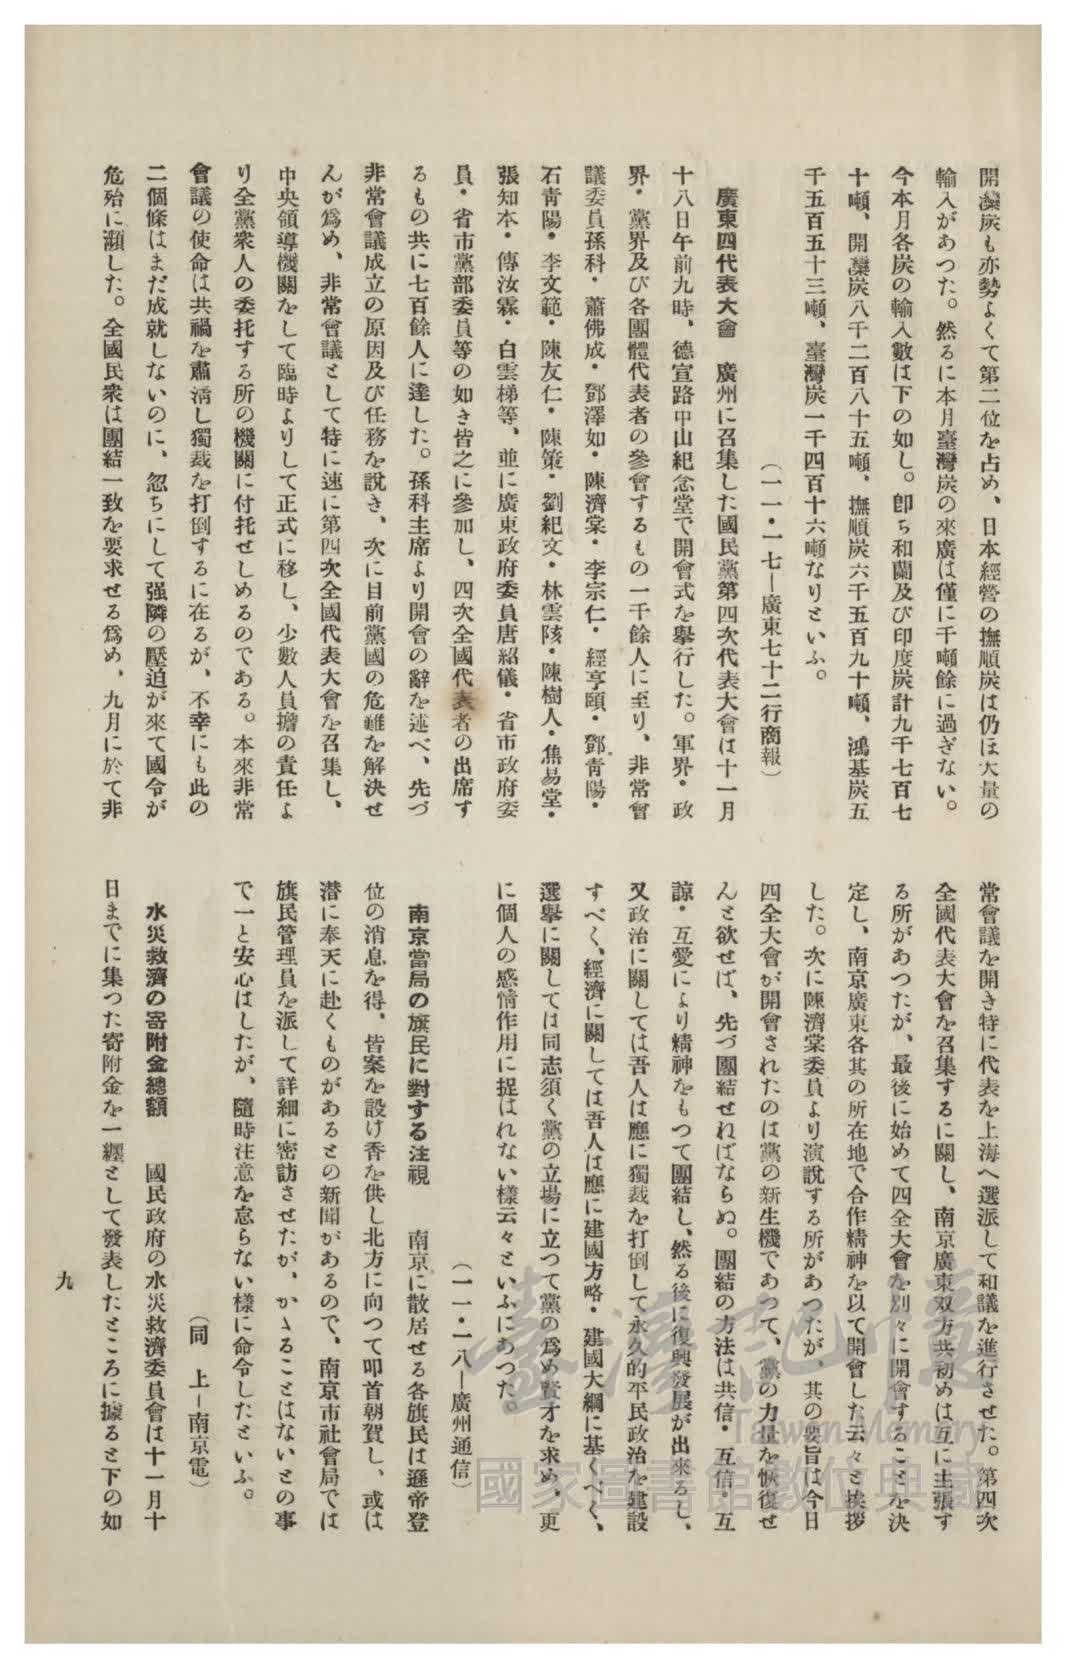 開灤炭も亦勢よくて第二位を占め、日本經營の撫順炭は仍ほ大量の
輸入があつた。然るに本月臺灣炭の來廣は僅に千噸餘に過ぎない。
今本月各炭の輸入數は下の如し。卽ち和蘭及び印度炭計九千七百七
十噸、開灤炭八千二百八十五噸、撫順炭六千五百九十噸、鴻基炭五
千五百五十三噸、臺灣炭一千四百十六噸なりといふ。
(一一・一七―廣東七十二行商報)
廣東四代表大會　廣州に召集した國民黨第四次代表大會は十一月
十八日午前九時、德宣路中山紀念堂で開會式を擧行した。軍界・政
界・黨界及び各團體代表者の參會するもの一千餘人に至り、非常會
議委員孫科・蕭佛成・鄧澤如・陳濟棠・李宗仁・經亨頤・鄧靑陽・
石靑陽・李文範・陳友仁・陳策・劉紀文・林雲陔・陳樹人・焦易堂・
張知本・傳汝霖・白雲梯等、並に廣東政府委員唐紹儀・省市政府委
員・省市黨部委員等の如き皆之に參加し、四次全國代表者の出席す
るもの共に七百餘人に達した。孫科主席より開會の辭を述べ、先づ
非常會議成立の原因及び任務を說き、次に目前黨國の危難を解決せ
んが爲め、非常會議として特に速に第四次全國代表大會を召集し、
中央領導機關をして臨時よりして正式に移し、少數人員擔の責任よ
り全黨衆人の委托する所の機關に付托せしめるのである。本來非常
會議の使命は共禍を肅淸し獨裁を打倒するに在るが、不幸にも此の
二個條はまだ成就しないのに、忽ちにして强隣の壓迫が來て國令が
危殆に瀕した。全國民衆は團結一致を要求せる爲め、九月に於て非
常會議を開き特に代表を上海へ選派して和議を進行させた。第四次
全國代表大會を召集するに關し、南京廣東双方共初めは互に主張す
る所があつたが、最後に始めて四全大會を別々に開會することを決
定し、南京廣東各其の所在地で合作精神を以て開會した云々と挨拶
した。次に陳濟棠委員より演說する所があつたが、其の要旨は今日
四全大會が開會されたのは黨の新生機であつて、黨の力量を恢復せ
んと欲せば、先づ團結せねばならぬ。團結の方法は共信・互信・互
諒・互愛により精神をもつて團結し、然る後に復興發展が出來るし、
又政治に關しては吾人は應に獨裁を打倒して永久的平民政治を建設
すべく、經濟に關しては吾人は應に建國方略・建國大綱に基くべく、
選擧に關しては同志須く黨の立場に立つて黨の爲め賢才を求め、更
に個人の感情作用に捉はれない樣云々といふにあつた。
(一一・一八―廣州通信)
南京當局の旗民に對する注視　南京に散居せる各旗民は遜帝登
位の消息を得、皆案を設け香を供し北方に向つて叩首朝賀し、或は
潛に奉天に赴くものがあるとの新聞があるので、南京市社會局では
旗民管理員を派して詳細に密訪させたが、かゝることはないとの事
で一と安心はしたが、隨時注意を怠らない樣に命令したといふ。
(同　上―南京電)
水災救濟の寄附金總額　國民政府の水災救濟委員會は十一月十
日までに集つた寄附金を一纒として發表したところに據ると下の如
九
臺灣記憶
Taiwan Memory
國家圖書館數位典藏